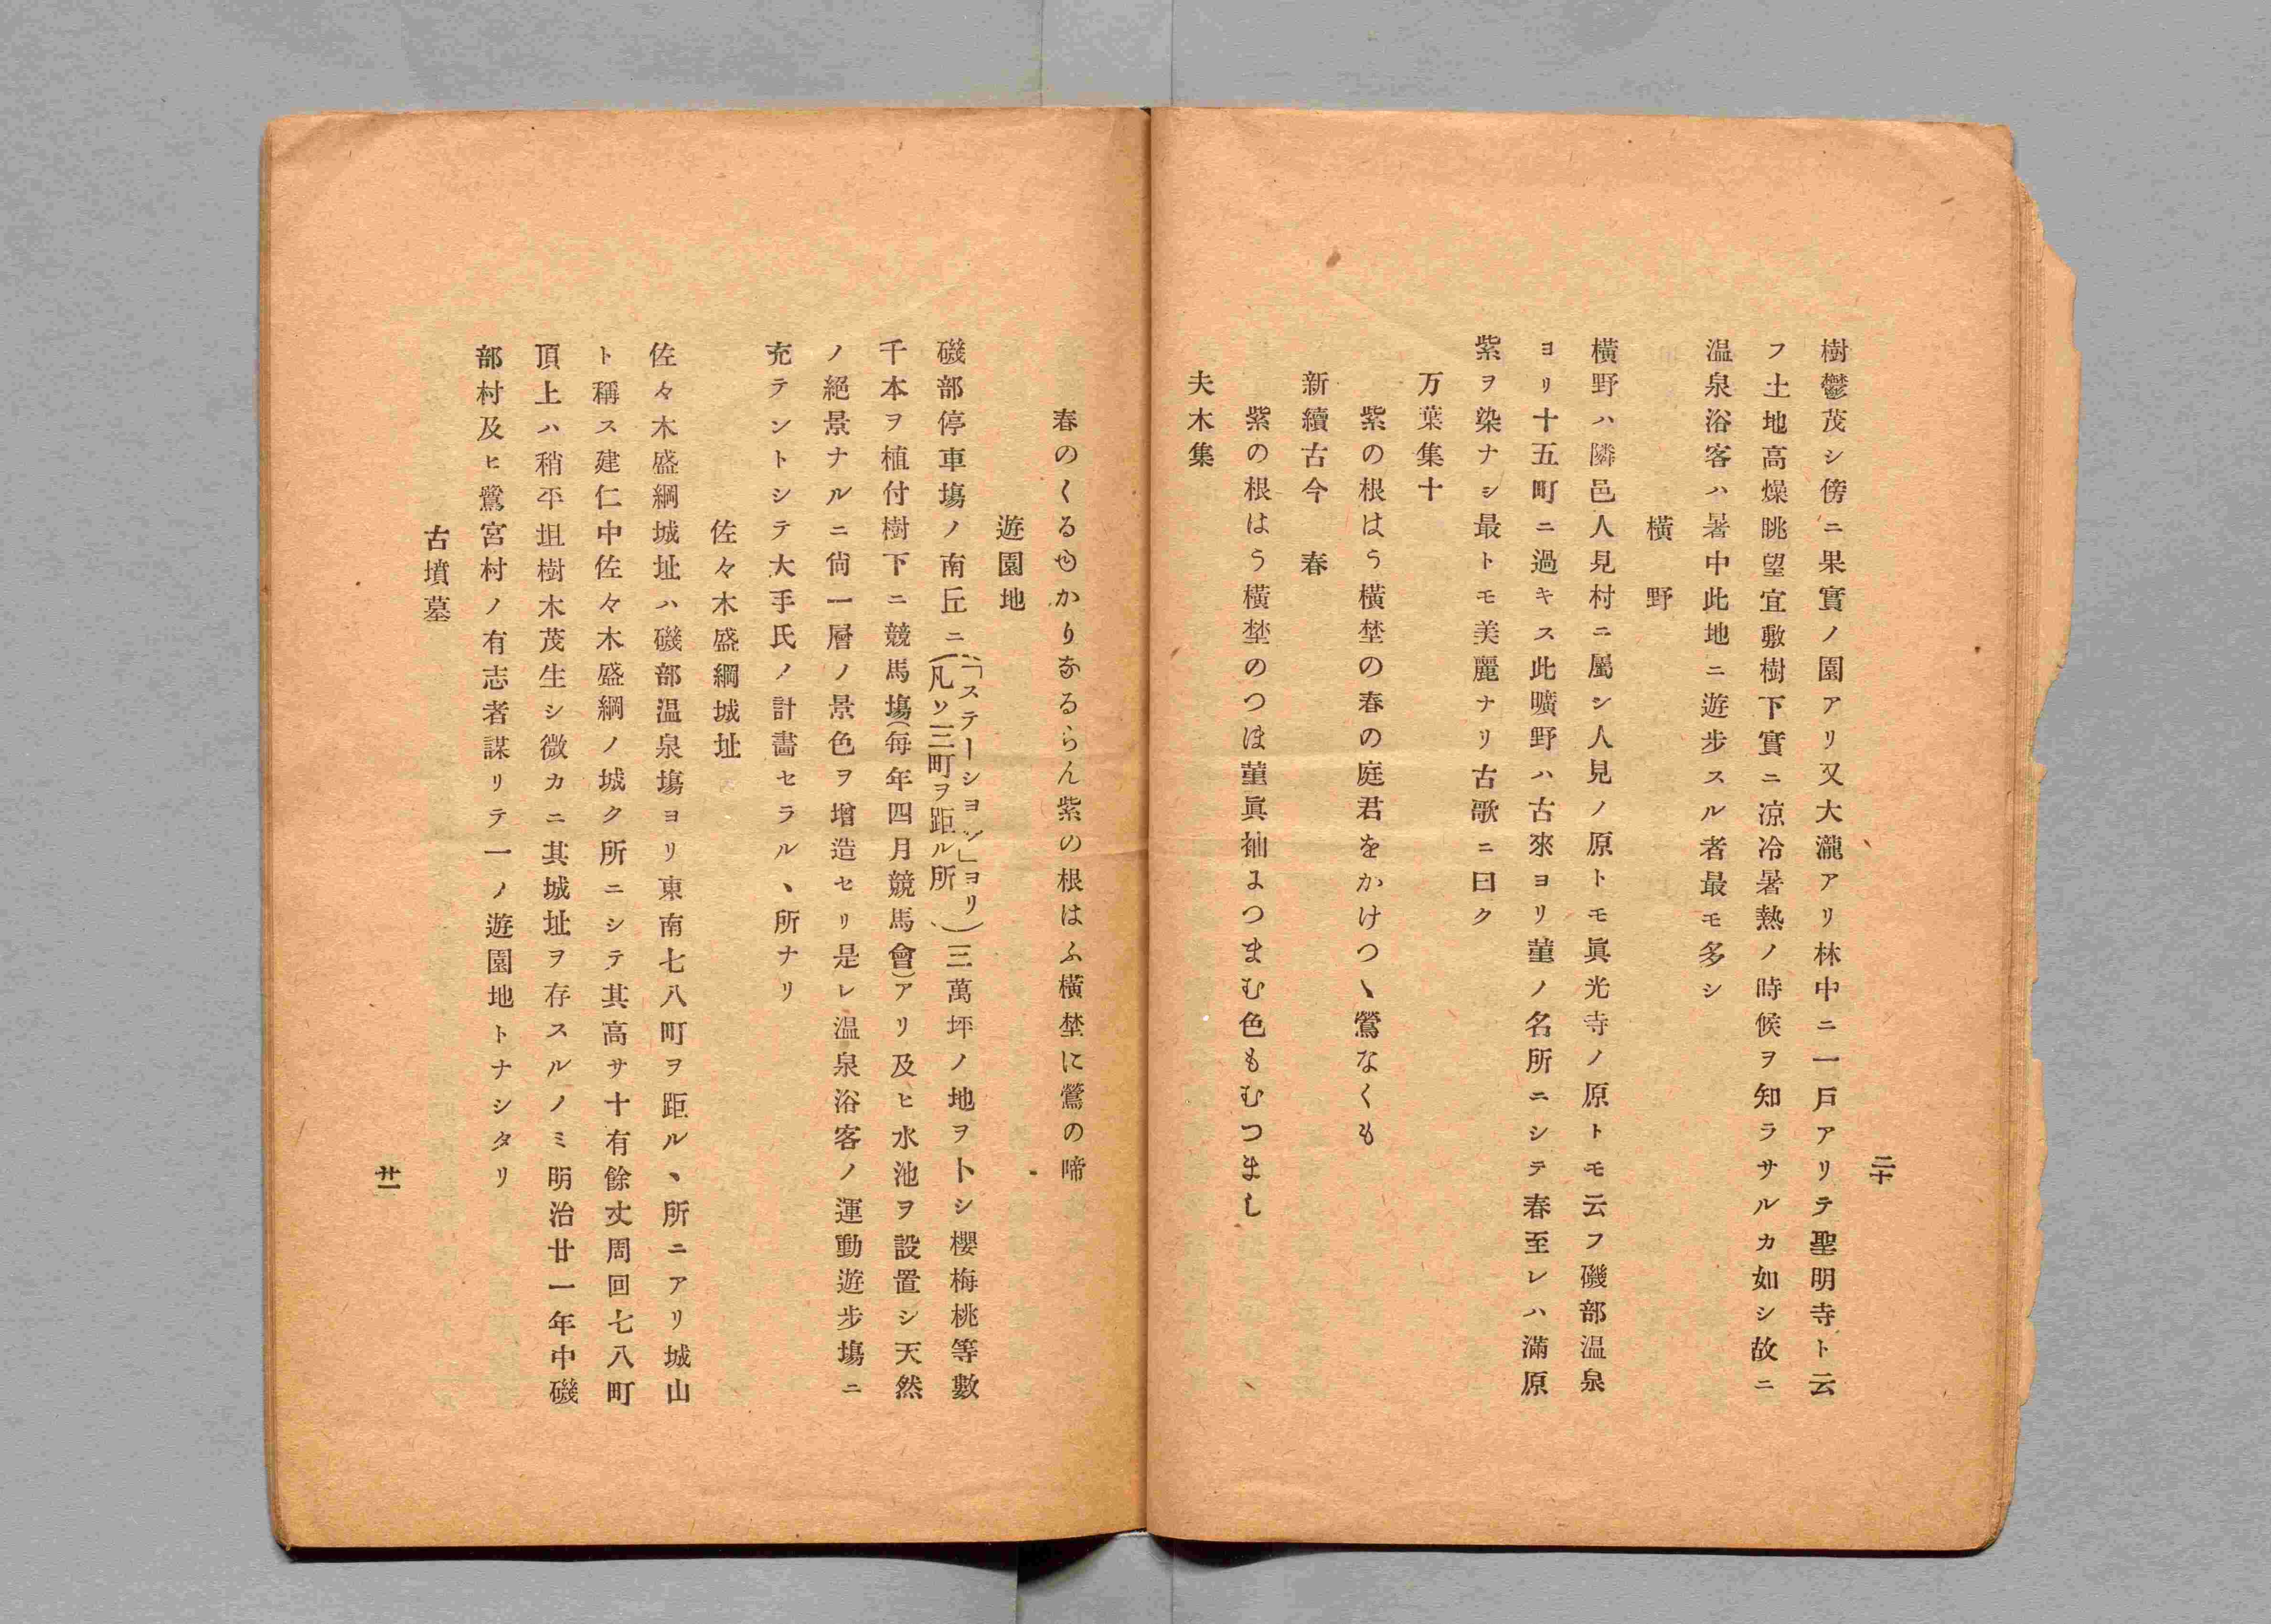 二十
樹鬱茂シ傍ニ果實ノ園アリ又大瀧アリ林中ニ一戸アリテ聖明寺ト云
フ土地高燥眺望宜敷樹下實ニ凉冷暑熱ノ時候ヲ知ラサルカ如シ故ニ
温泉浴客ハ暑中此地ニ遊歩スル者最モ多シ
横野
横野ハ隣邑人見村ニ屬シ人見ノ原トモ眞光寺ノ原トモ云フ磯部温泉
ヨリ十五町ニ過キス此曠野ハ古來ヨリ菫ノ名所ニシテ春至レハ滿原
紫ヲ染ナシ最トモ美麗ナリ古歌ニ曰ク
万葉集十
紫の根はう横埜の春の庭君をかけつゝ鶯なくも
新續古今　春
紫の根はう横埜のつほ菫眞袖につまむ色もむつまし
夫木集
春のくるゆかりなるらん紫の根はふ横埜に鶯の啼
遊園地
磯部停車塲ノ南丘ニ（「ステーシヨン」ヨリ凡ソ三町ヲ距ル所）三萬坪ノ地ヲトシ櫻梅桃等數
千本ヲ植付樹下ニ競馬塲（毎年四月競馬會）アリ及ヒ水池ヲ設置シ天然
ノ絕景ナルニ尙一層ノ景色ヲ增造セリ是レ温泉浴客ノ運動遊歩塲ニ
充テントシテ大手氏ノ計畵セラルヽ所ナリ
佐々木盛綱城址
佐々木盛綱城址ハ磯部温泉塲ヨリ東南七八町ヲ距ルヽ所ニアリ城山
ト稱ス建仁中佐々木盛綱ノ城ク所ニシテ其高サ十有餘丈周回七八町
頂上ハ稍平坦樹木茂生シ微カニ其城址ヲ存スルノミ明治廿一年中磯
部村及ヒ鷺宮村ノ有志者謀リテ一ノ遊園地トナシタリ
古墳墓
廿一